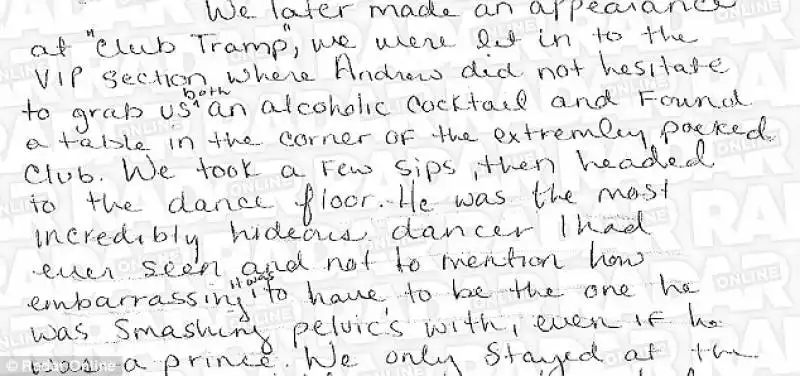 We later made an appearance
at "Club Tramp", we were let in to the
VIP section where Andrew did not hesitate
to grab us both an alcoholic cocktail and Found
a table in the corner of the extremley packed
Club. We took a few sips, then headed
to the dance floor. He was the most
incredibly hideous dancer I had
ever seen and not to mention how
embarrassing it was to have to be the one he
was smashing pelvic's with, even if he
was a prince. We only stayed at the
© RadarOnline